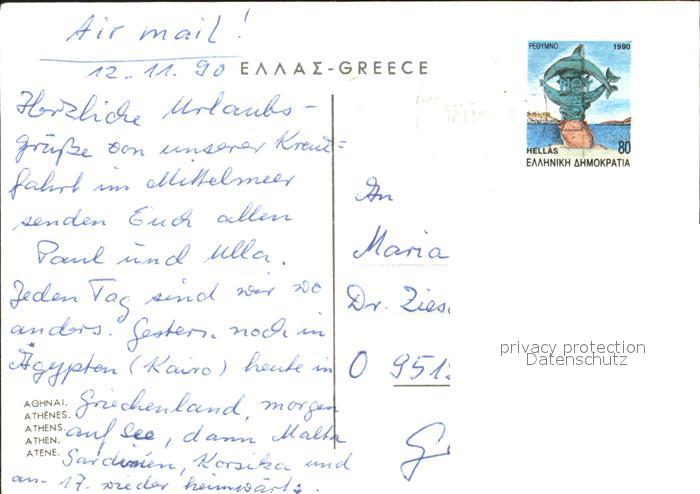 Air mail!
12.11.90
ΕΛΛΑΣ-GREECE
Herzliche Urlaubs-
grüße von unserer Kreuz=
fahrt im Mittelmeer
senden Euch allen
Paul und Ulla.
Jeden Tag sind wir wo
anders. Gestern noch in
Ägypten (Kairo) heute in
Griechenland, morgen
auf See, dann Malta
Sardinien, Korsika und
am 17. wieder heimwärts.
ΑΘΗΝΑΙ.
ATHÈNES.
ATHENS.
ATHEN.
ATENE.
ΡΕΘΥΜΝΟ 1990
HELLAS 80
ΕΛΛΗΝΙΚΗ ΔΗΜΟΚΡΑΤΙΑ
An
Maria
Dr.
O 951
privacy protection
Datenschutz